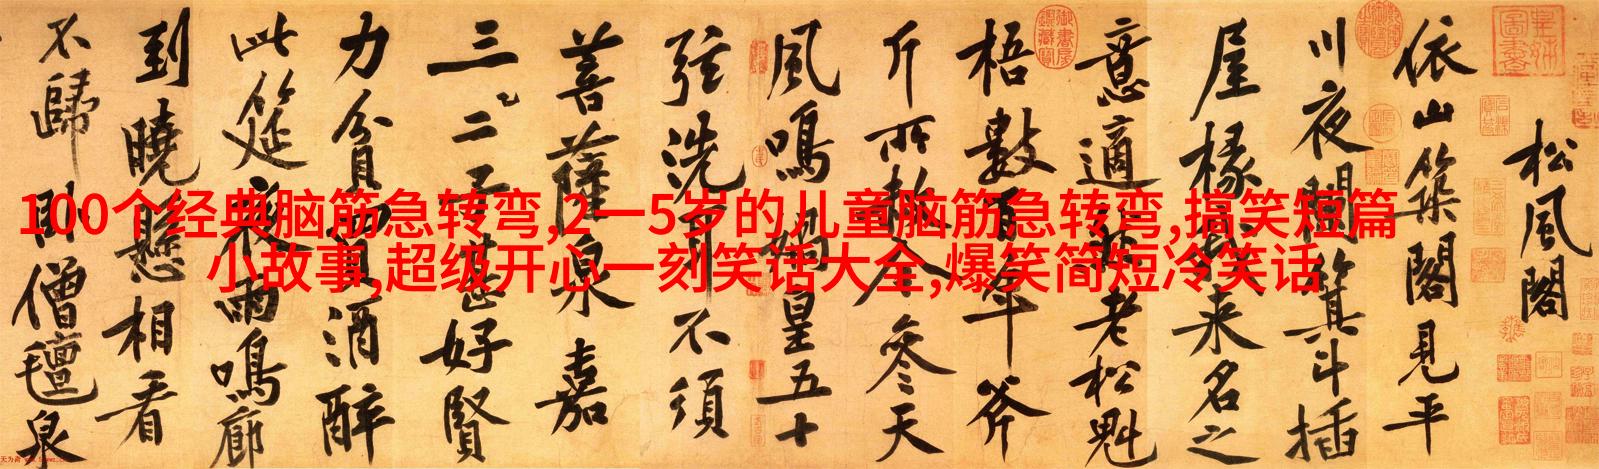 100个经典脑筋急转弯,2一5岁的儿童脑筋急转弯,搞笑短篇
小故事,超级开心一刻笑话大全,爆笑简短冷笑话
松風閣
依山築閣見平
川夜闌箕斗插
屋椽我來名之
意適然老松魁
梧數百年斧
斤所赦今參天
風鳴媧皇五十
弦洗耳不須
菩薩泉嘉
三二子甚好賢
力貧買酒醉
此筵夜雨鳴廊
到曉懸相看
不歸臥僧氈泉